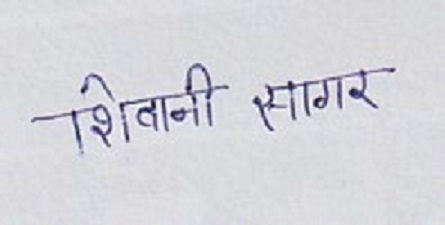 शिवानी सागर